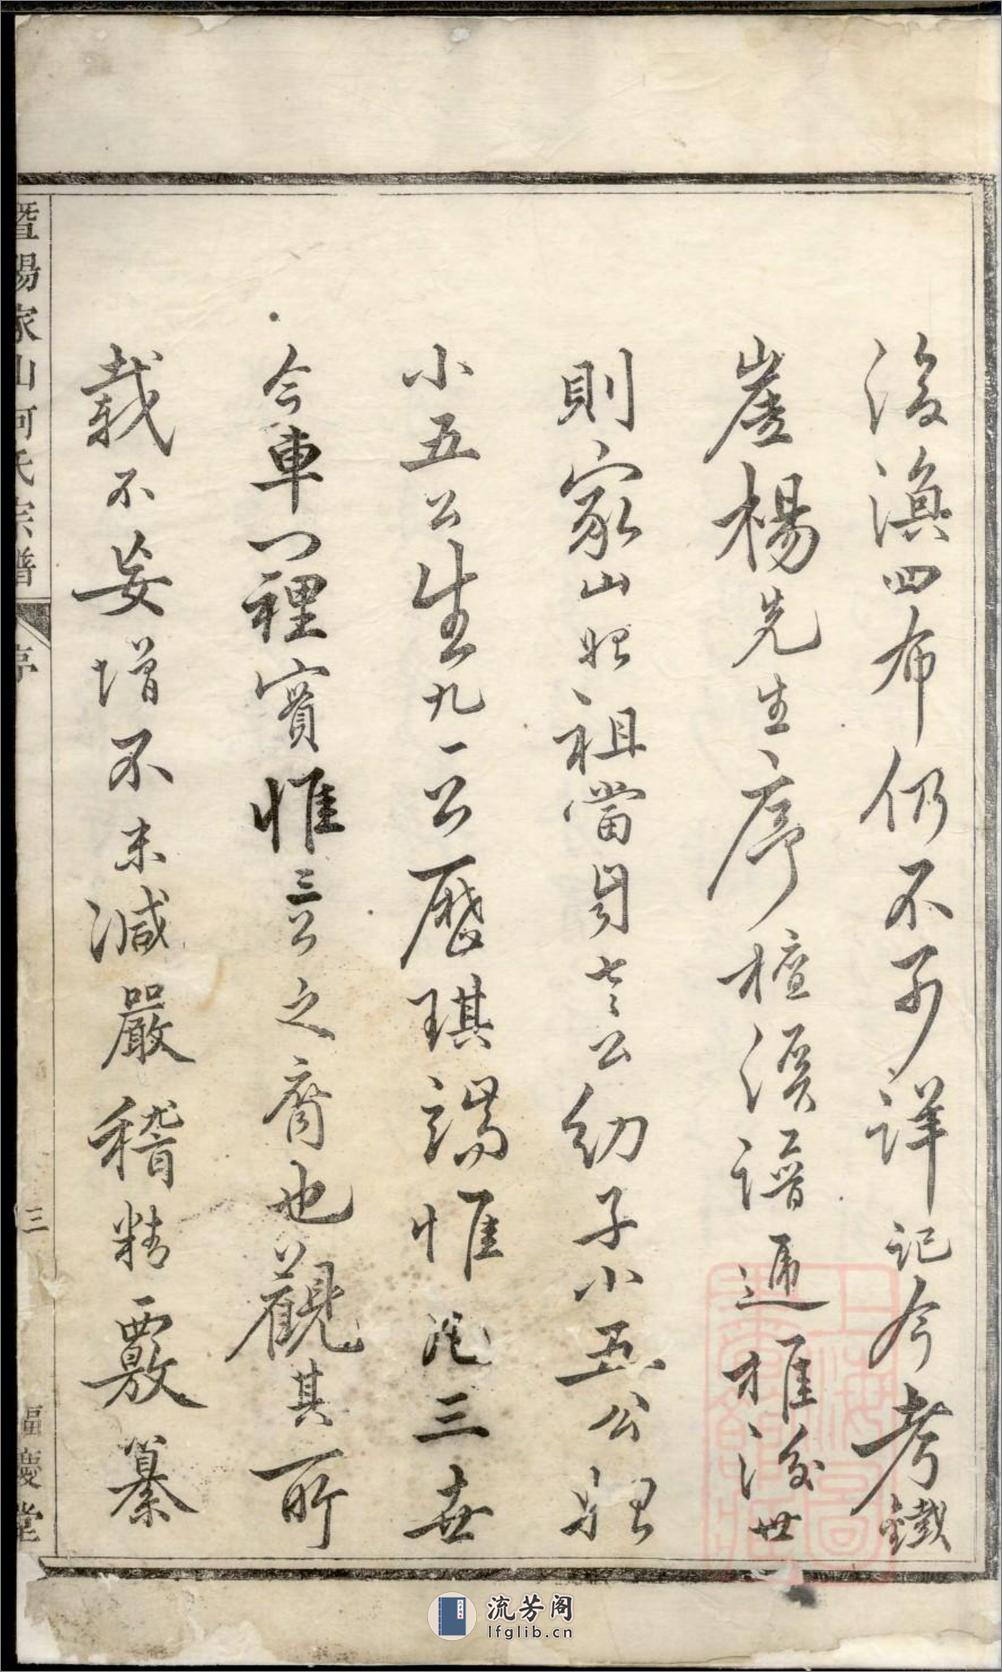 後滇四布仍不可詳記今考鐵
崖楊先生序檀溪譜遞推後世
則家山始祖當屬七公幼子小五公耶
小五公生九一公歷琪端惟三世
今車門裡實惟三公之裔也觀其所
載不妄增不末減嚴稽精覈纂
暨陽家山何氏宗譜
序
三
福慶堂
流芳阁
lfglib.cn